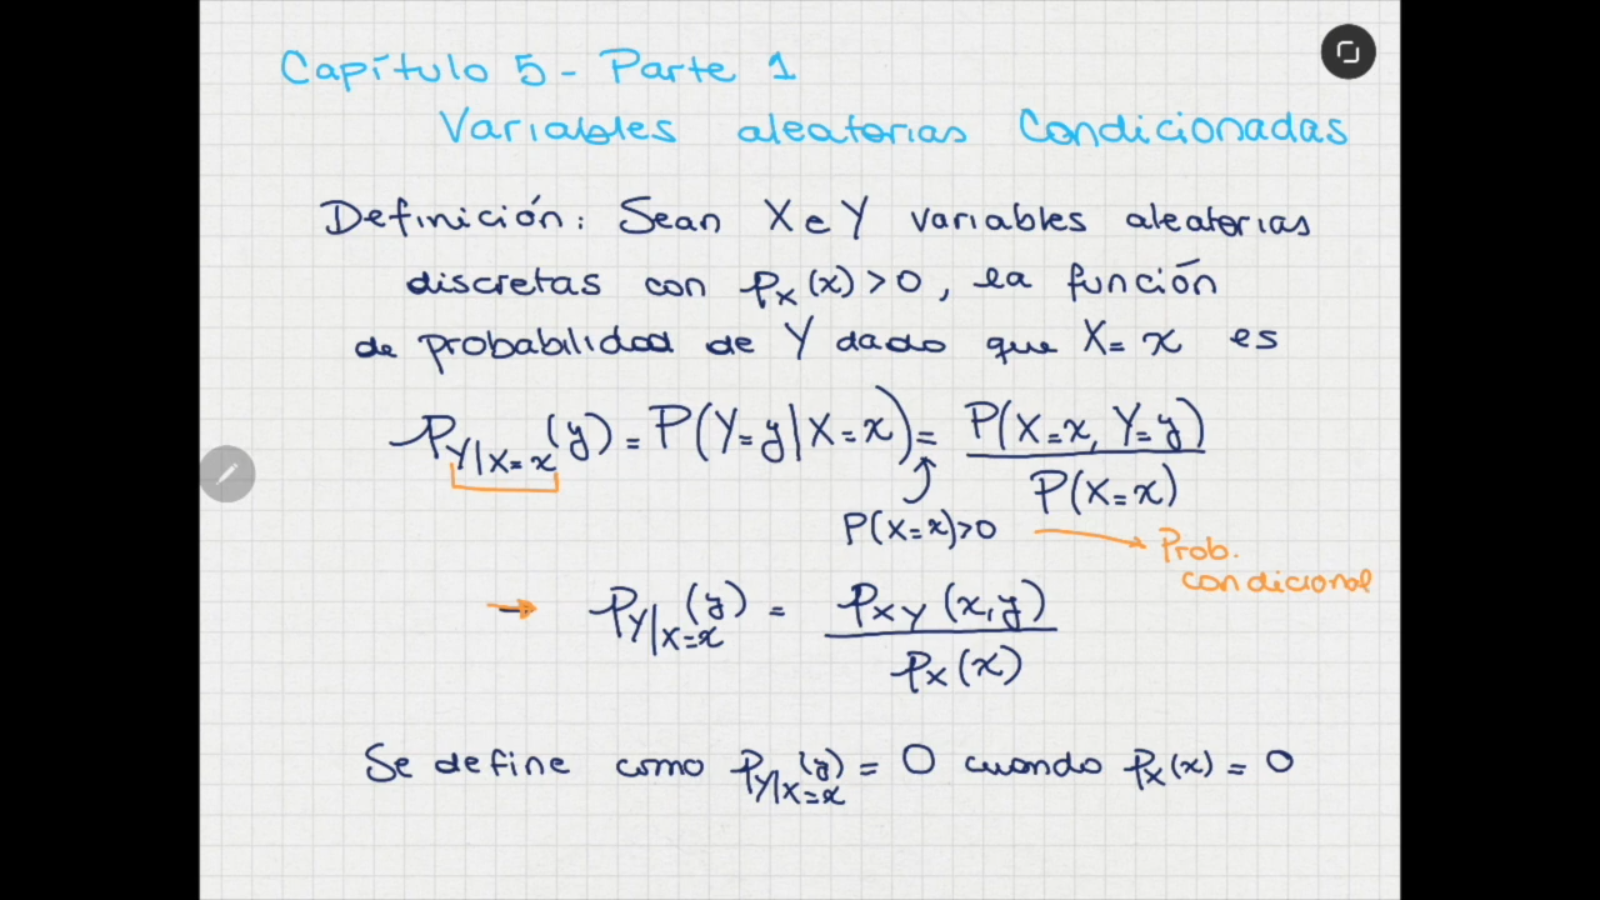 Capítulo 5 - Parte 1
Variables aleatorias Condicionadas
Definición: Sean X e Y variables aleatorias
discretas con p_X(x) > 0, la función
de probabilidad de Y dado que X = x es
p_{Y|X=x}(y) = P(Y=y|X=x) = P(X=x, Y=y) / P(X=x)
P(X=x)>0
Prob.
condicional
→ p_{Y|X=x}(y) = p_{XY}(x,y) / p_X(x)
Se define como p_{Y|X=x}(y) = 0 cuando p_X(x) = 0